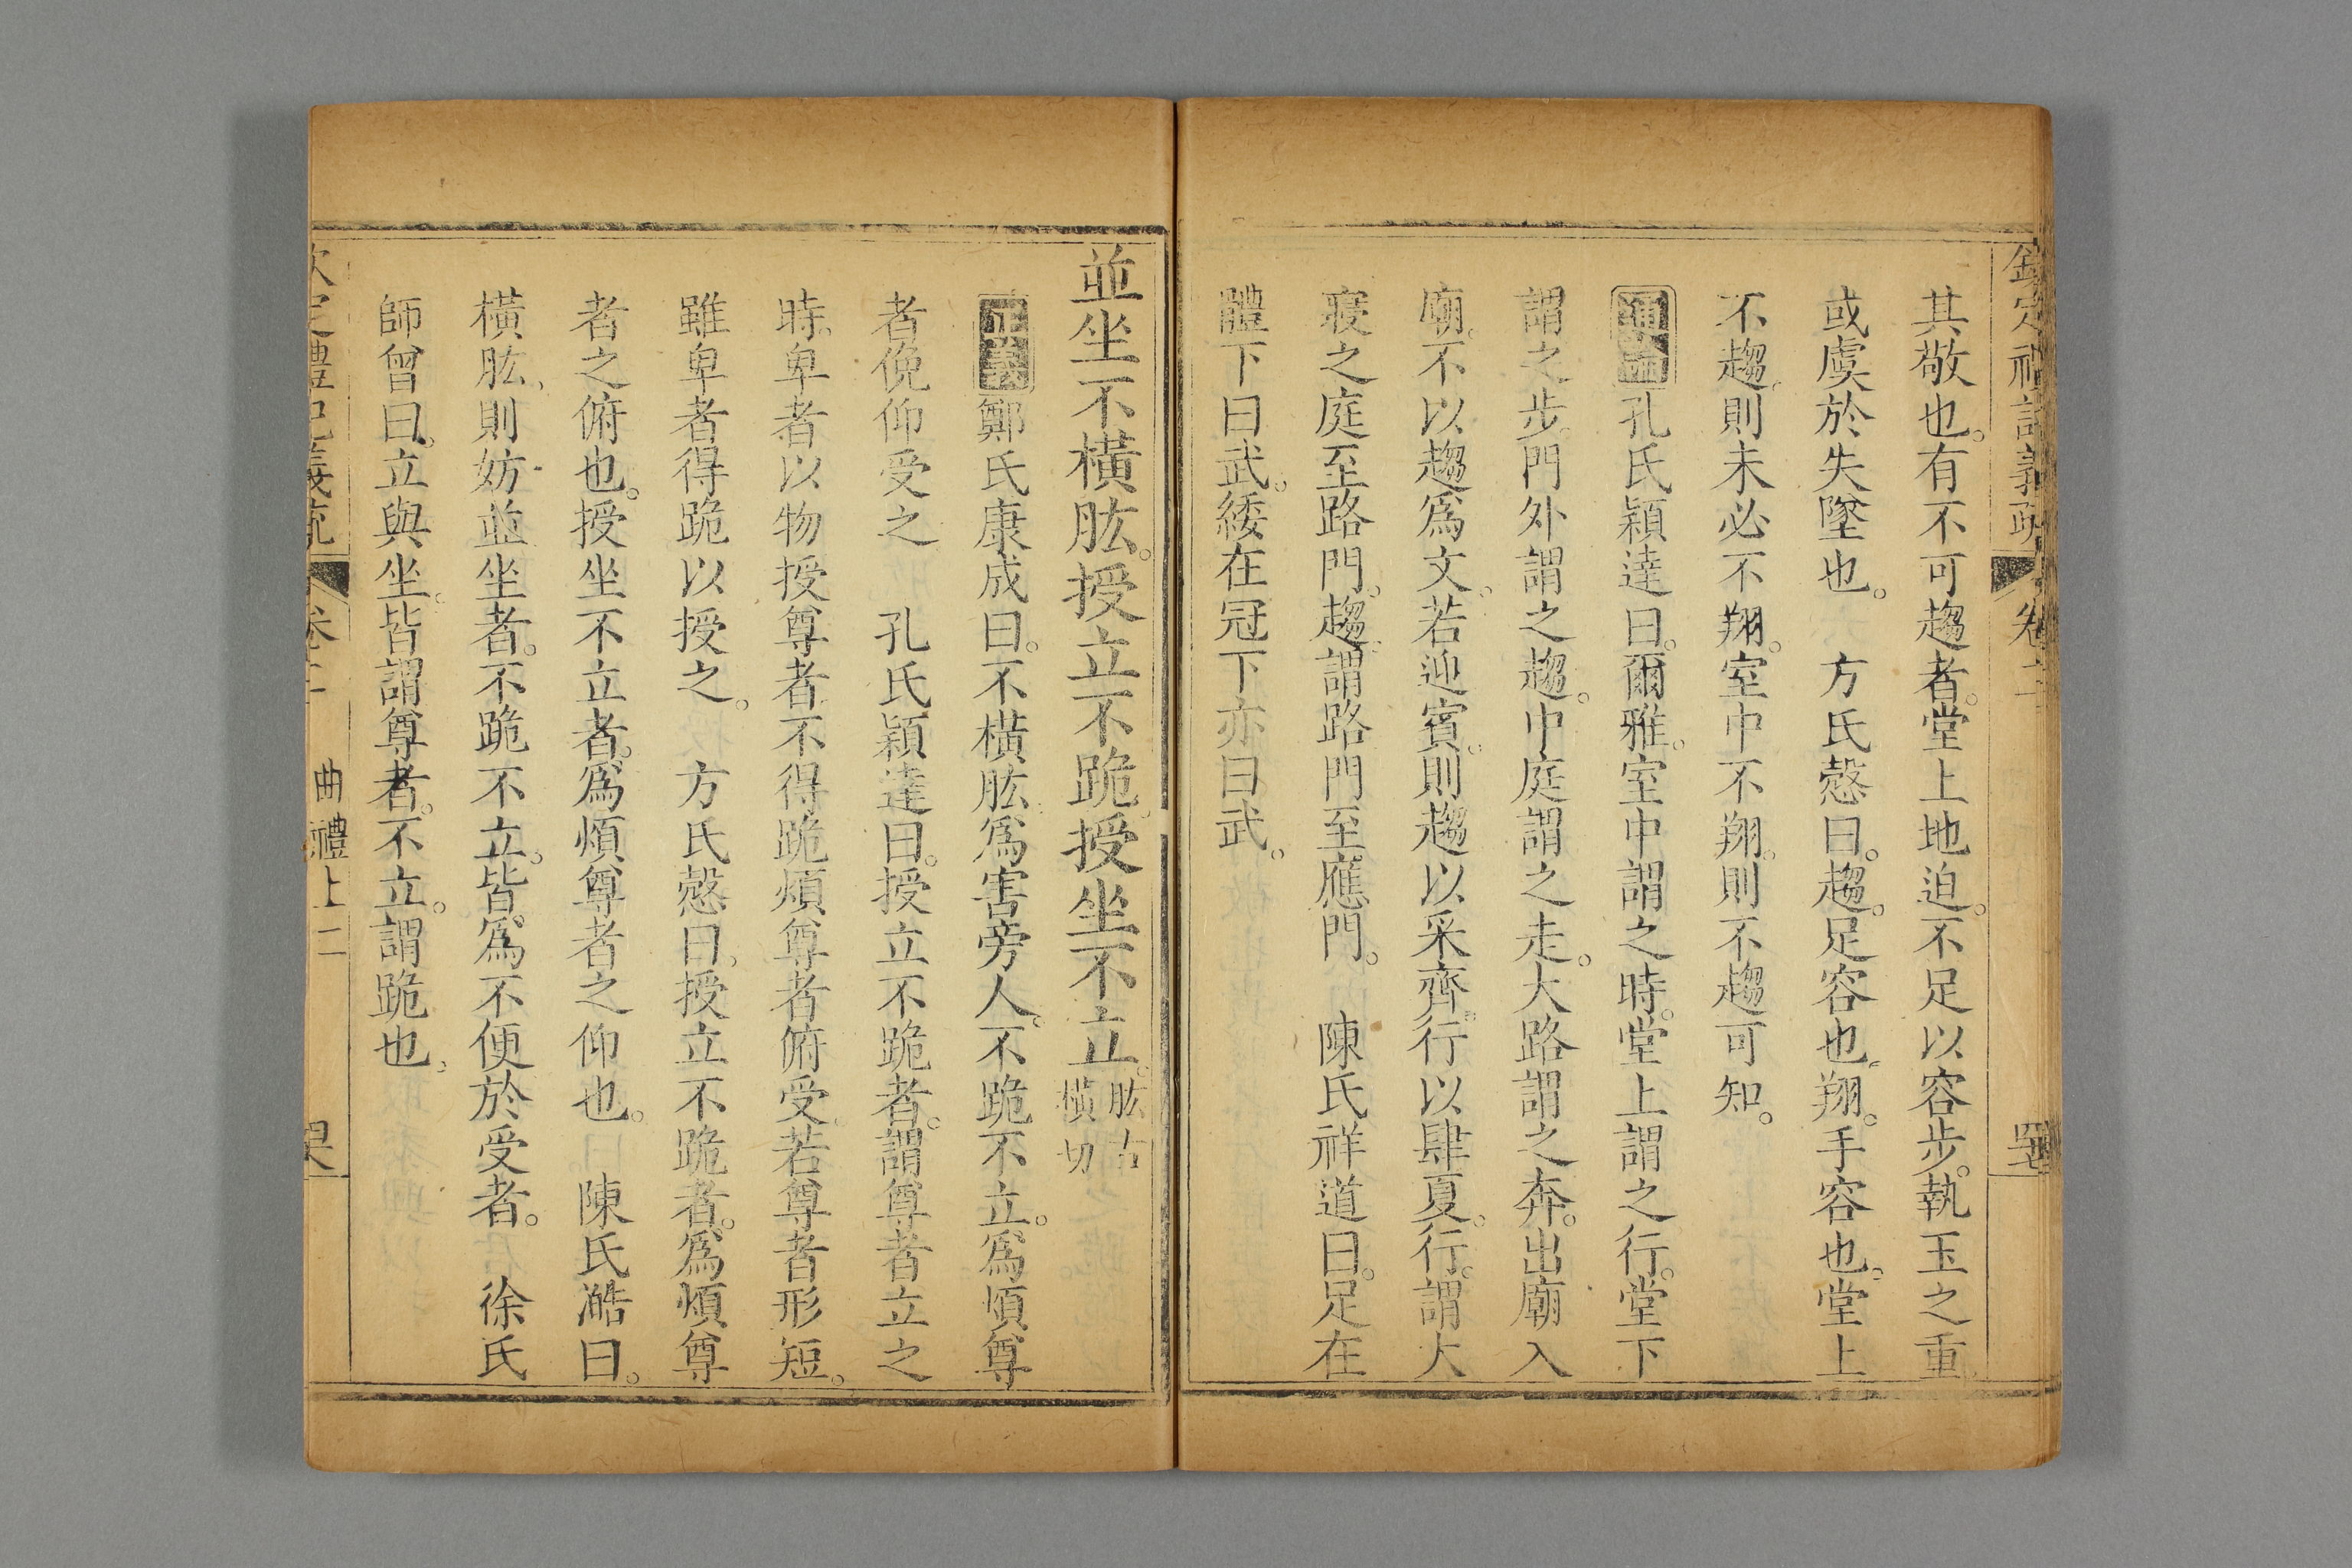 欽定禮記義疏 卷二
其敬也。有不可趨者。堂上地迫。不足以容步。執玉之重
或虞於失墜也。 方氏慤曰。趨。足容也。翔。手容也。堂上
不趨。則未必不翔。室中不翔。則不趨可知。
通論 孔氏穎達曰。爾雅。室中謂之時。堂上謂之行。堂下
謂之步。門外謂之趨。中庭謂之走。大路謂之奔。出廟入
廟。不以趨爲文。若迎賓。則趨以采齊。行以肆夏。行。謂大
寢之庭至路門。趨。謂路門至應門。 陳氏祥道曰。足在
體下曰武。緌在冠下亦曰武。
並坐不橫肱。授立不跪。授坐不立。肱古橫切
正義 鄭氏康成曰。不橫肱。爲害旁人。不跪不立。爲煩尊
者俛仰受之 孔氏穎達曰。授立不跪者。謂尊者立之
時。卑者以物授尊者。不得跪煩尊者俯受。若尊者形短。
雖卑者得跪以授之。 方氏慤曰。授立不跪者。爲煩尊
者之俯也。授坐不立者。爲煩尊者之仰也。 陳氏澔曰。
橫肱。則妨並坐者。不跪不立。皆爲不便於受者。 徐氏
師曾曰。立與坐。皆謂尊者。不立。謂跪也。
欽定禮記義疏 卷二 曲禮上二